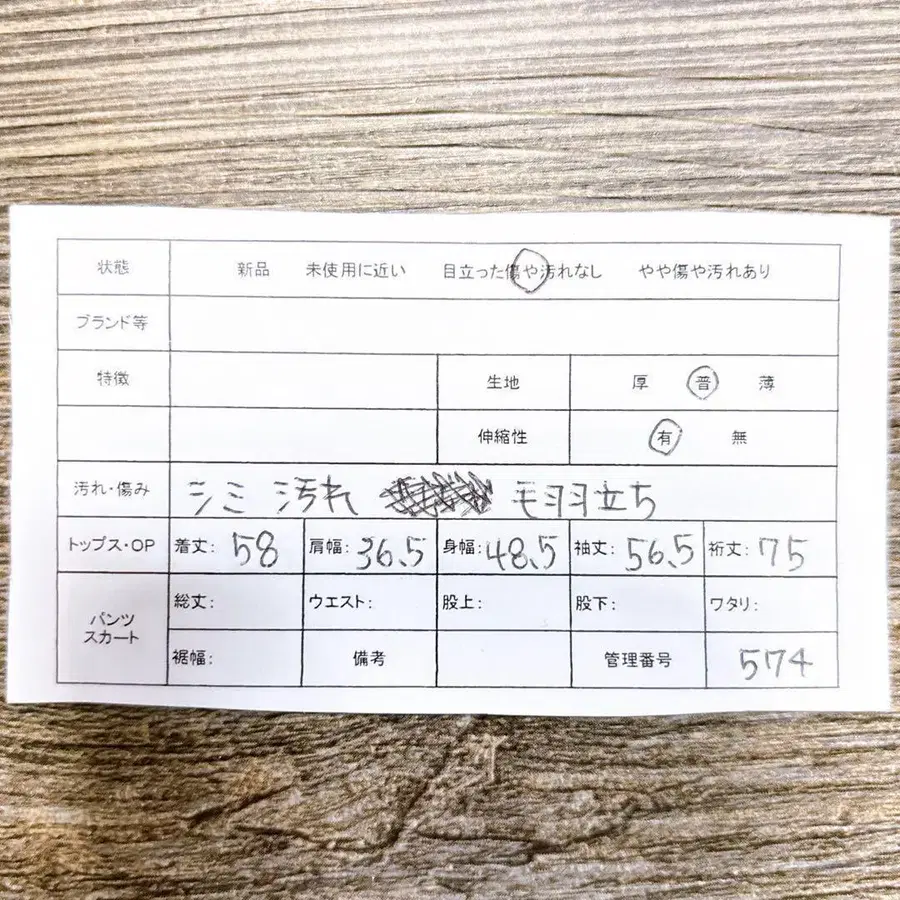 状態 新品 未使用に近い 目立った傷や汚れなし やや傷や汚れあり
ブランド等
特徴 生地 厚 普 薄
伸縮性 有 無
汚れ・傷み シミ 汚れ 毛羽立ち
トップス・OP 着丈: 58 肩幅: 36.5 身幅: 48.5 袖丈: 56.5 裄丈: 75
パンツ スカート 総丈: ウエスト: 股上: 股下: ワタリ:
裾幅: 備考 管理番号 574